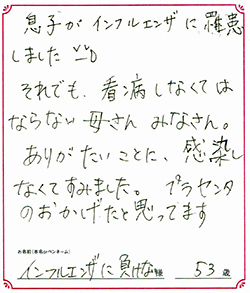 息子がインフルエンザに罹患
しました
それでも、看病しなくては
ならない母さん みなさん。
ありがたいことに、感染し
なくてすみました。プラセンタ
のおかげだと思ってます
お名前(本名orペンネーム)
インフルエンザに負けな 様 53 歳